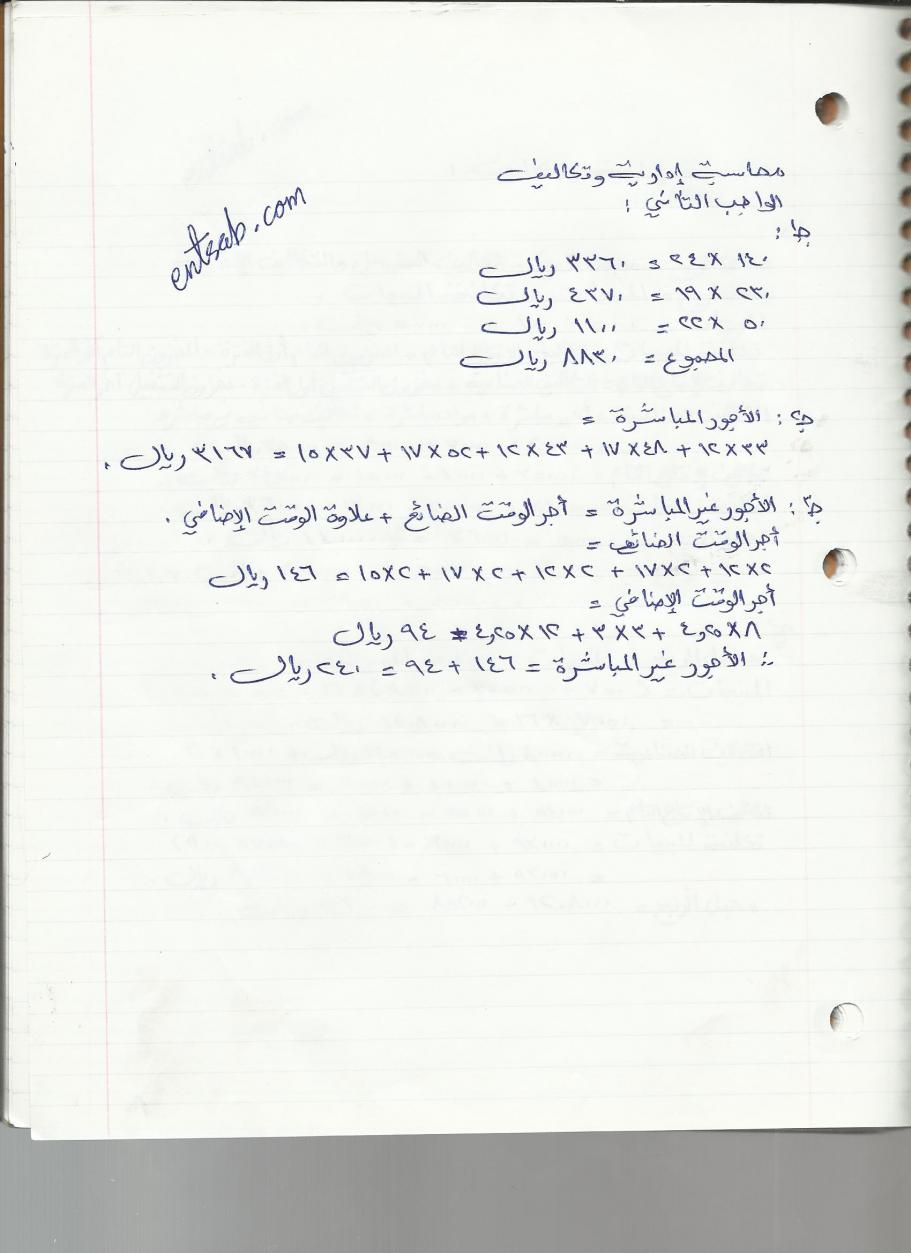 entsab.com
محاسبة إدارية وتكاليف
الواجب الثاني :
ج١ :
١٤٠ × ٢٤ = ٣٣٦٠ ريال
٢٣٠ × ١٩ = ٤٣٧٠ ريال
٥٠ × ٢٢ = ١١٠٠ ريال
المجموع = ٨٨٣٠ ريال
ج٢ : الأجور المباشرة =
٣٣×١٢ + ٤٨×١٧ + ٤٣×١٢ + ٥٢×١٧ + ٣٧×١٥ = ٣١٦٧ ريال .
ج٣ : الأجور غير المباشرة = أجر الوقت الضائع + علاوة الوقت الإضافي .
أجر الوقت الضائع =
٢×١٢ + ٢×١٧ + ٢×١٢ + ٢×١٧ + ٢×١٥ = ١٤٦ ريال
أجر الوقت الإضافي =
٨×٤,٢٥ + ٣×٣ + ١٢×٤,٢٥ = ٩٤ ريال
∴ الأجور غير المباشرة = ١٤٦ + ٩٤ = ٢٤٠ ريال .